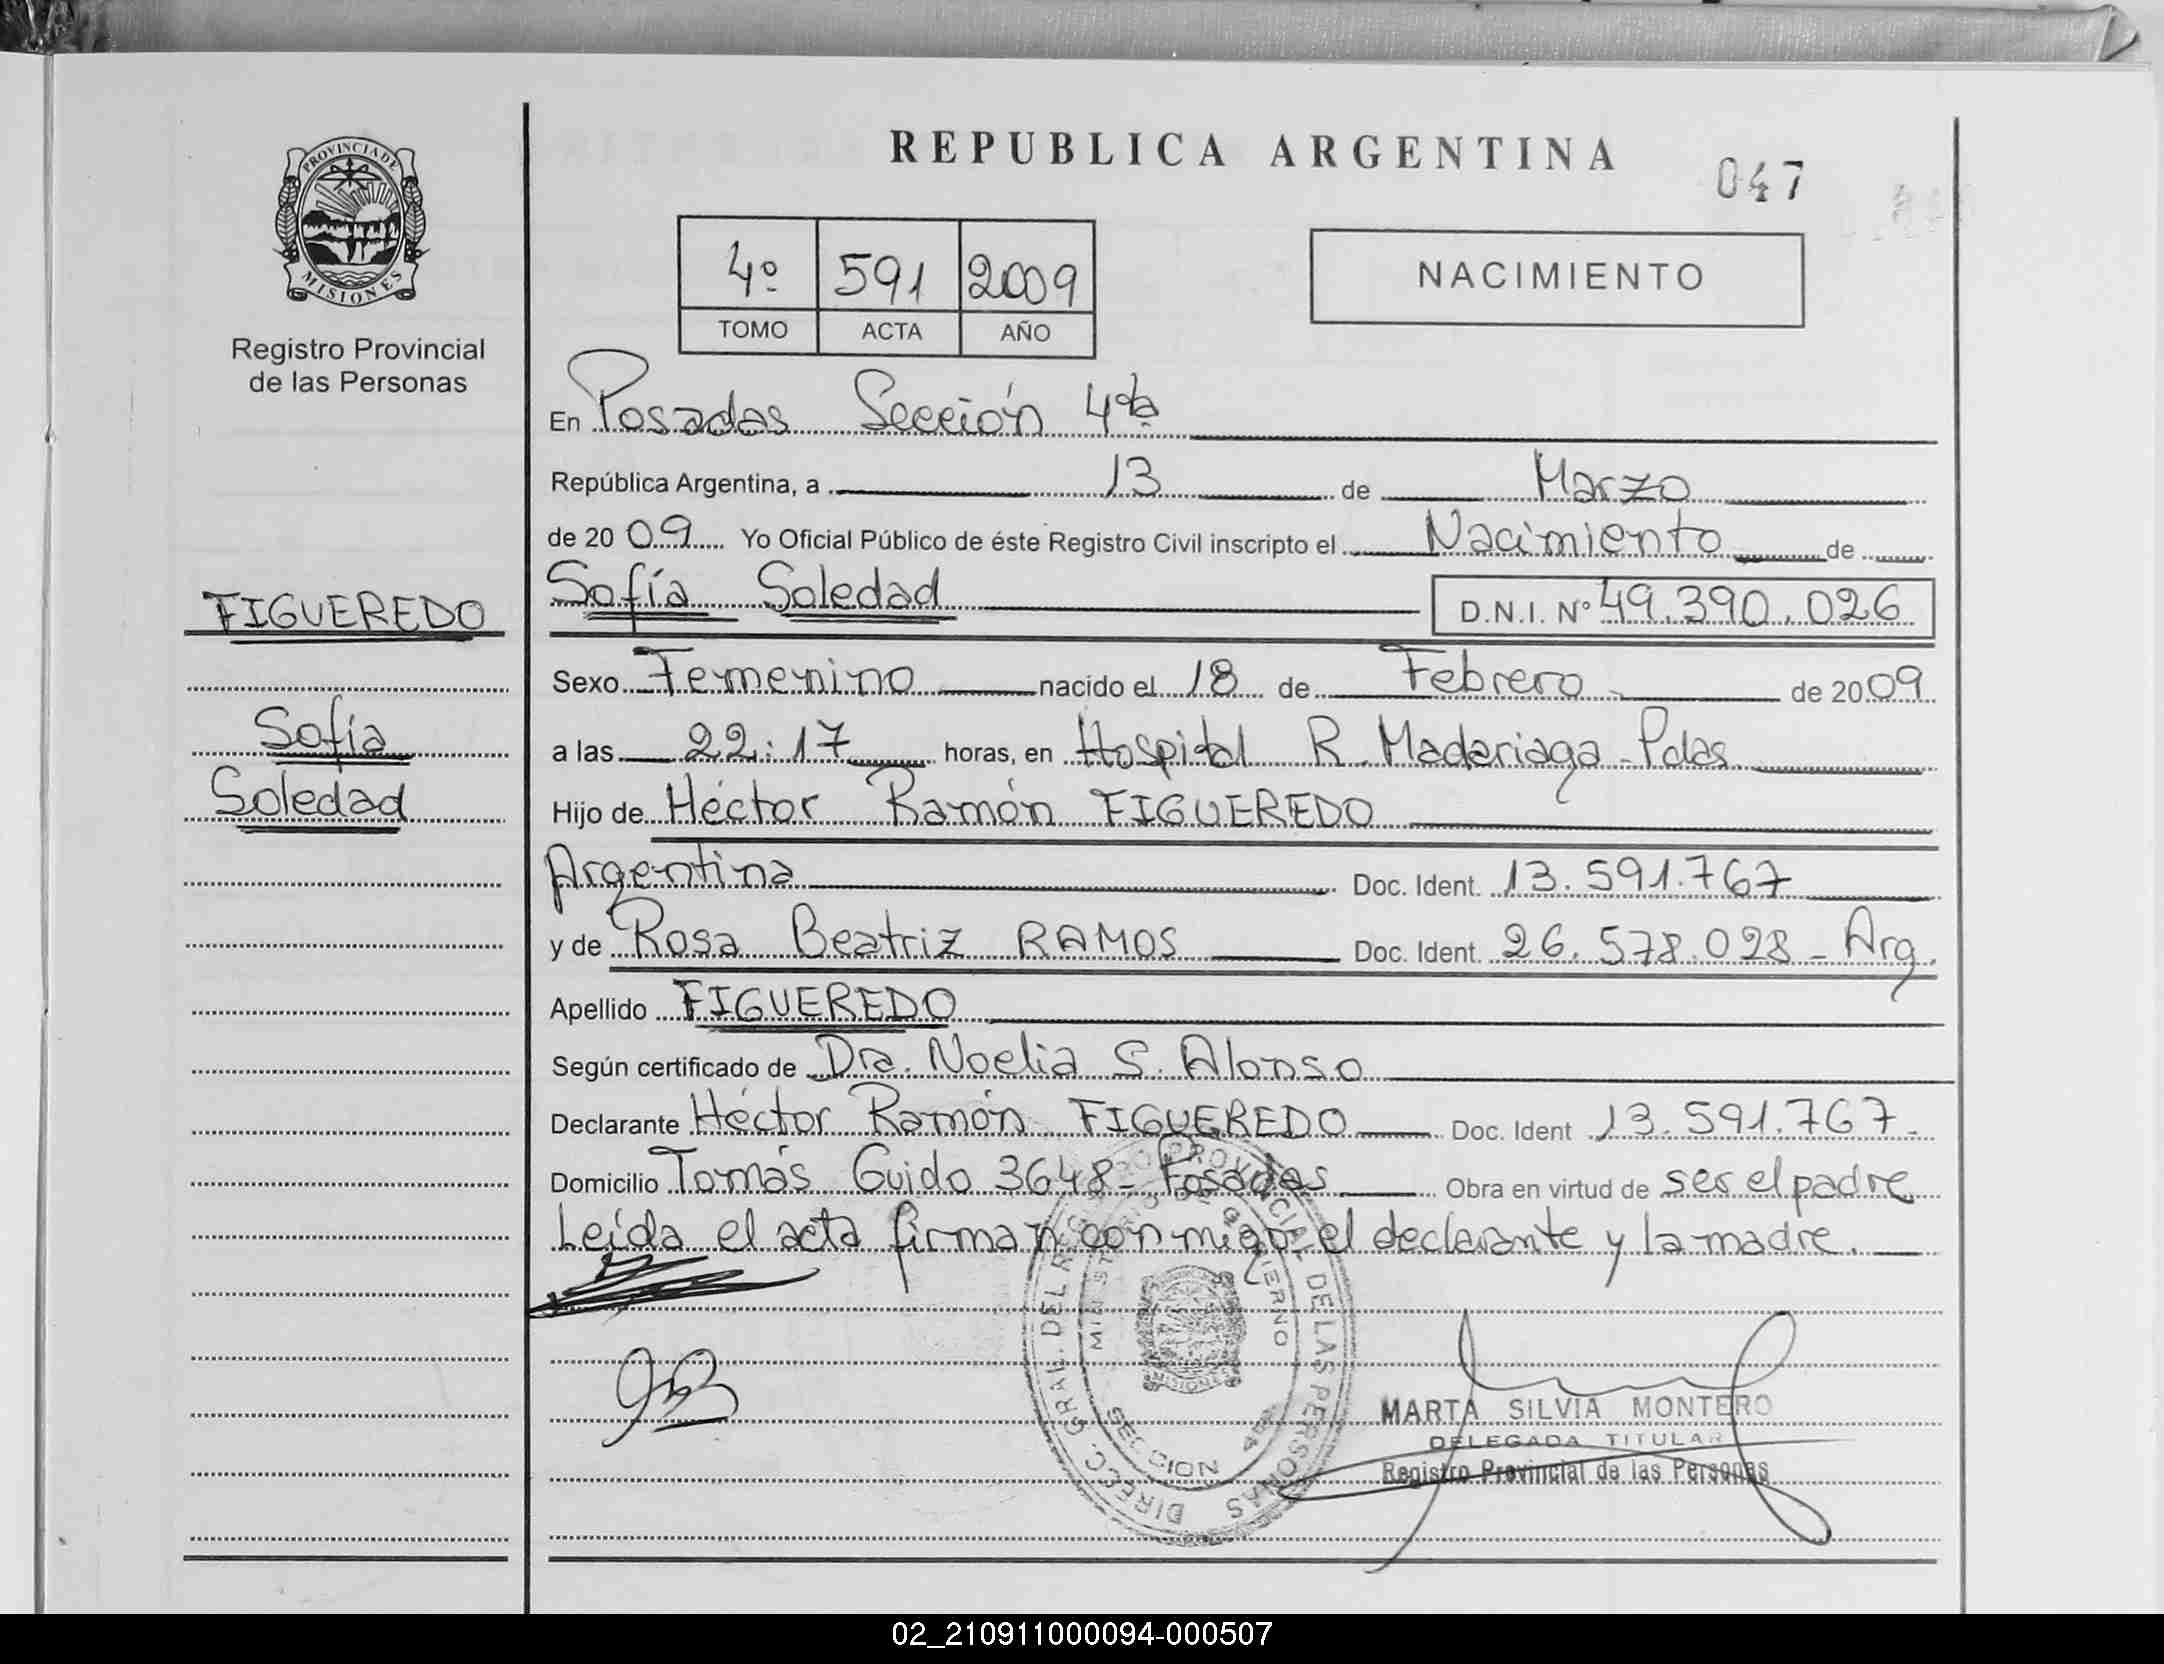 REPUBLICA ARGENTINA
047
PROVINCIA DE
MISIONES
Registro Provincial
de las Personas
4º 591 2009
TOMO ACTA AÑO
NACIMIENTO
En Posadas Sección 4ta
República Argentina, a 13 de Marzo
de 2009 Yo Oficial Público de éste Registro Civil inscripto el Nacimiento de
Sofía Soledad D.N.I. Nº 49.390.026
FIGUEREDO
Sofía
Soledad
Sexo Femenino nacido el 18 de Febrero de 2009
a las 22:17 horas, en Hospital R. Madariaga - Pdas
Hijo de Héctor Ramón FIGUEREDO
Argentina Doc. Ident. 13.591.767
y de Rosa Beatriz RAMOS Doc. Ident. 26.578.028 - Arg.
Apellido FIGUEREDO
Según certificado de Dra. Noelia S. Alonso
Declarante Héctor Ramón FIGUEREDO Doc. Ident 13.591.767.
Domicilio Tomás Guido 3648 - Posadas Obra en virtud de ser el padre
Leída el acta firman conmigo el declarante y la madre.
DIRECC. GRAL. DEL REGISTRO PROVINCIAL DE LAS PERSONAS
MINISTERIO DE GOBIERNO
MISIONES
SECCION 4ta
MARTA SILVIA MONTERO
DELEGADA TITULAR
Registro Provincial de las Personas
02_210911000094-000507